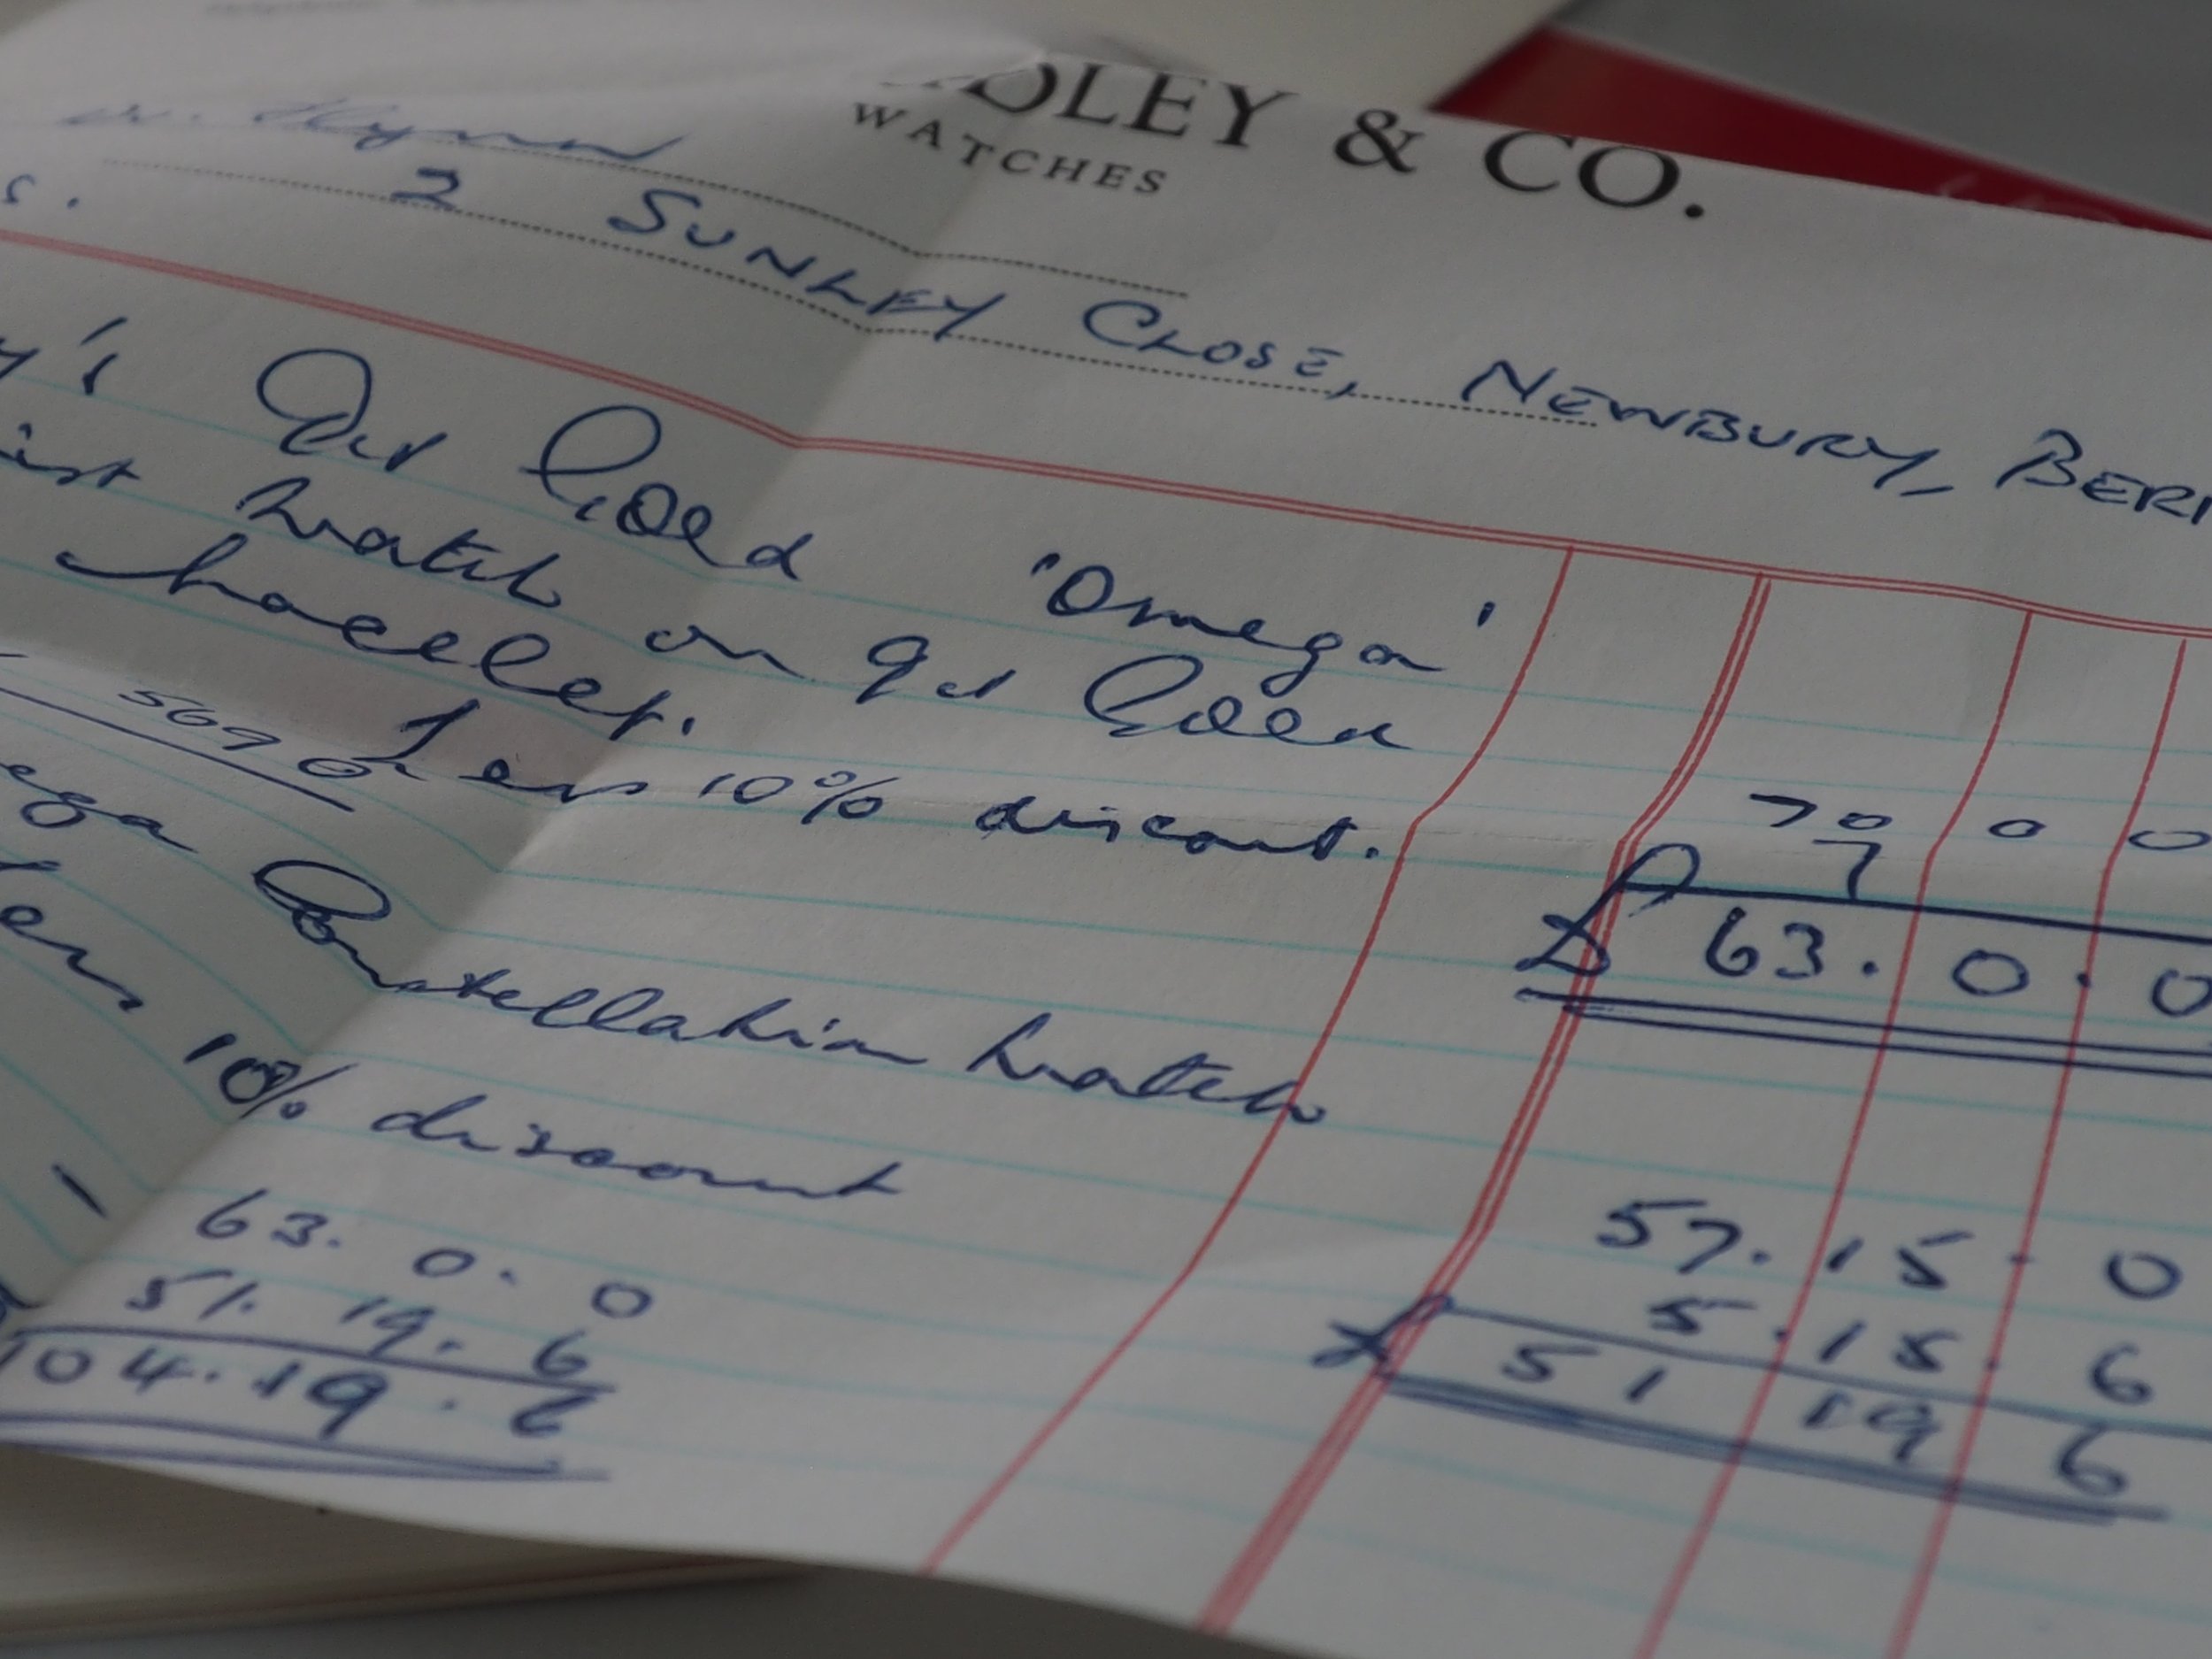 DLEY & CO.
WATCHES
2 SUNLEY CLOSE, NEWBURY, BERK
s.
y's 9ct Gold 'Omega'
ist watch on 9ct Gold
bracelet.
Less 10% discount.
5690
70 0 0
7
£ 63. 0. 0
ega Constellation Watch
Less 10% discount
57. 15. 0
5. 15. 6
£ 51 19 6
63. 0. 0
51. 19. 6
104. 19. 6